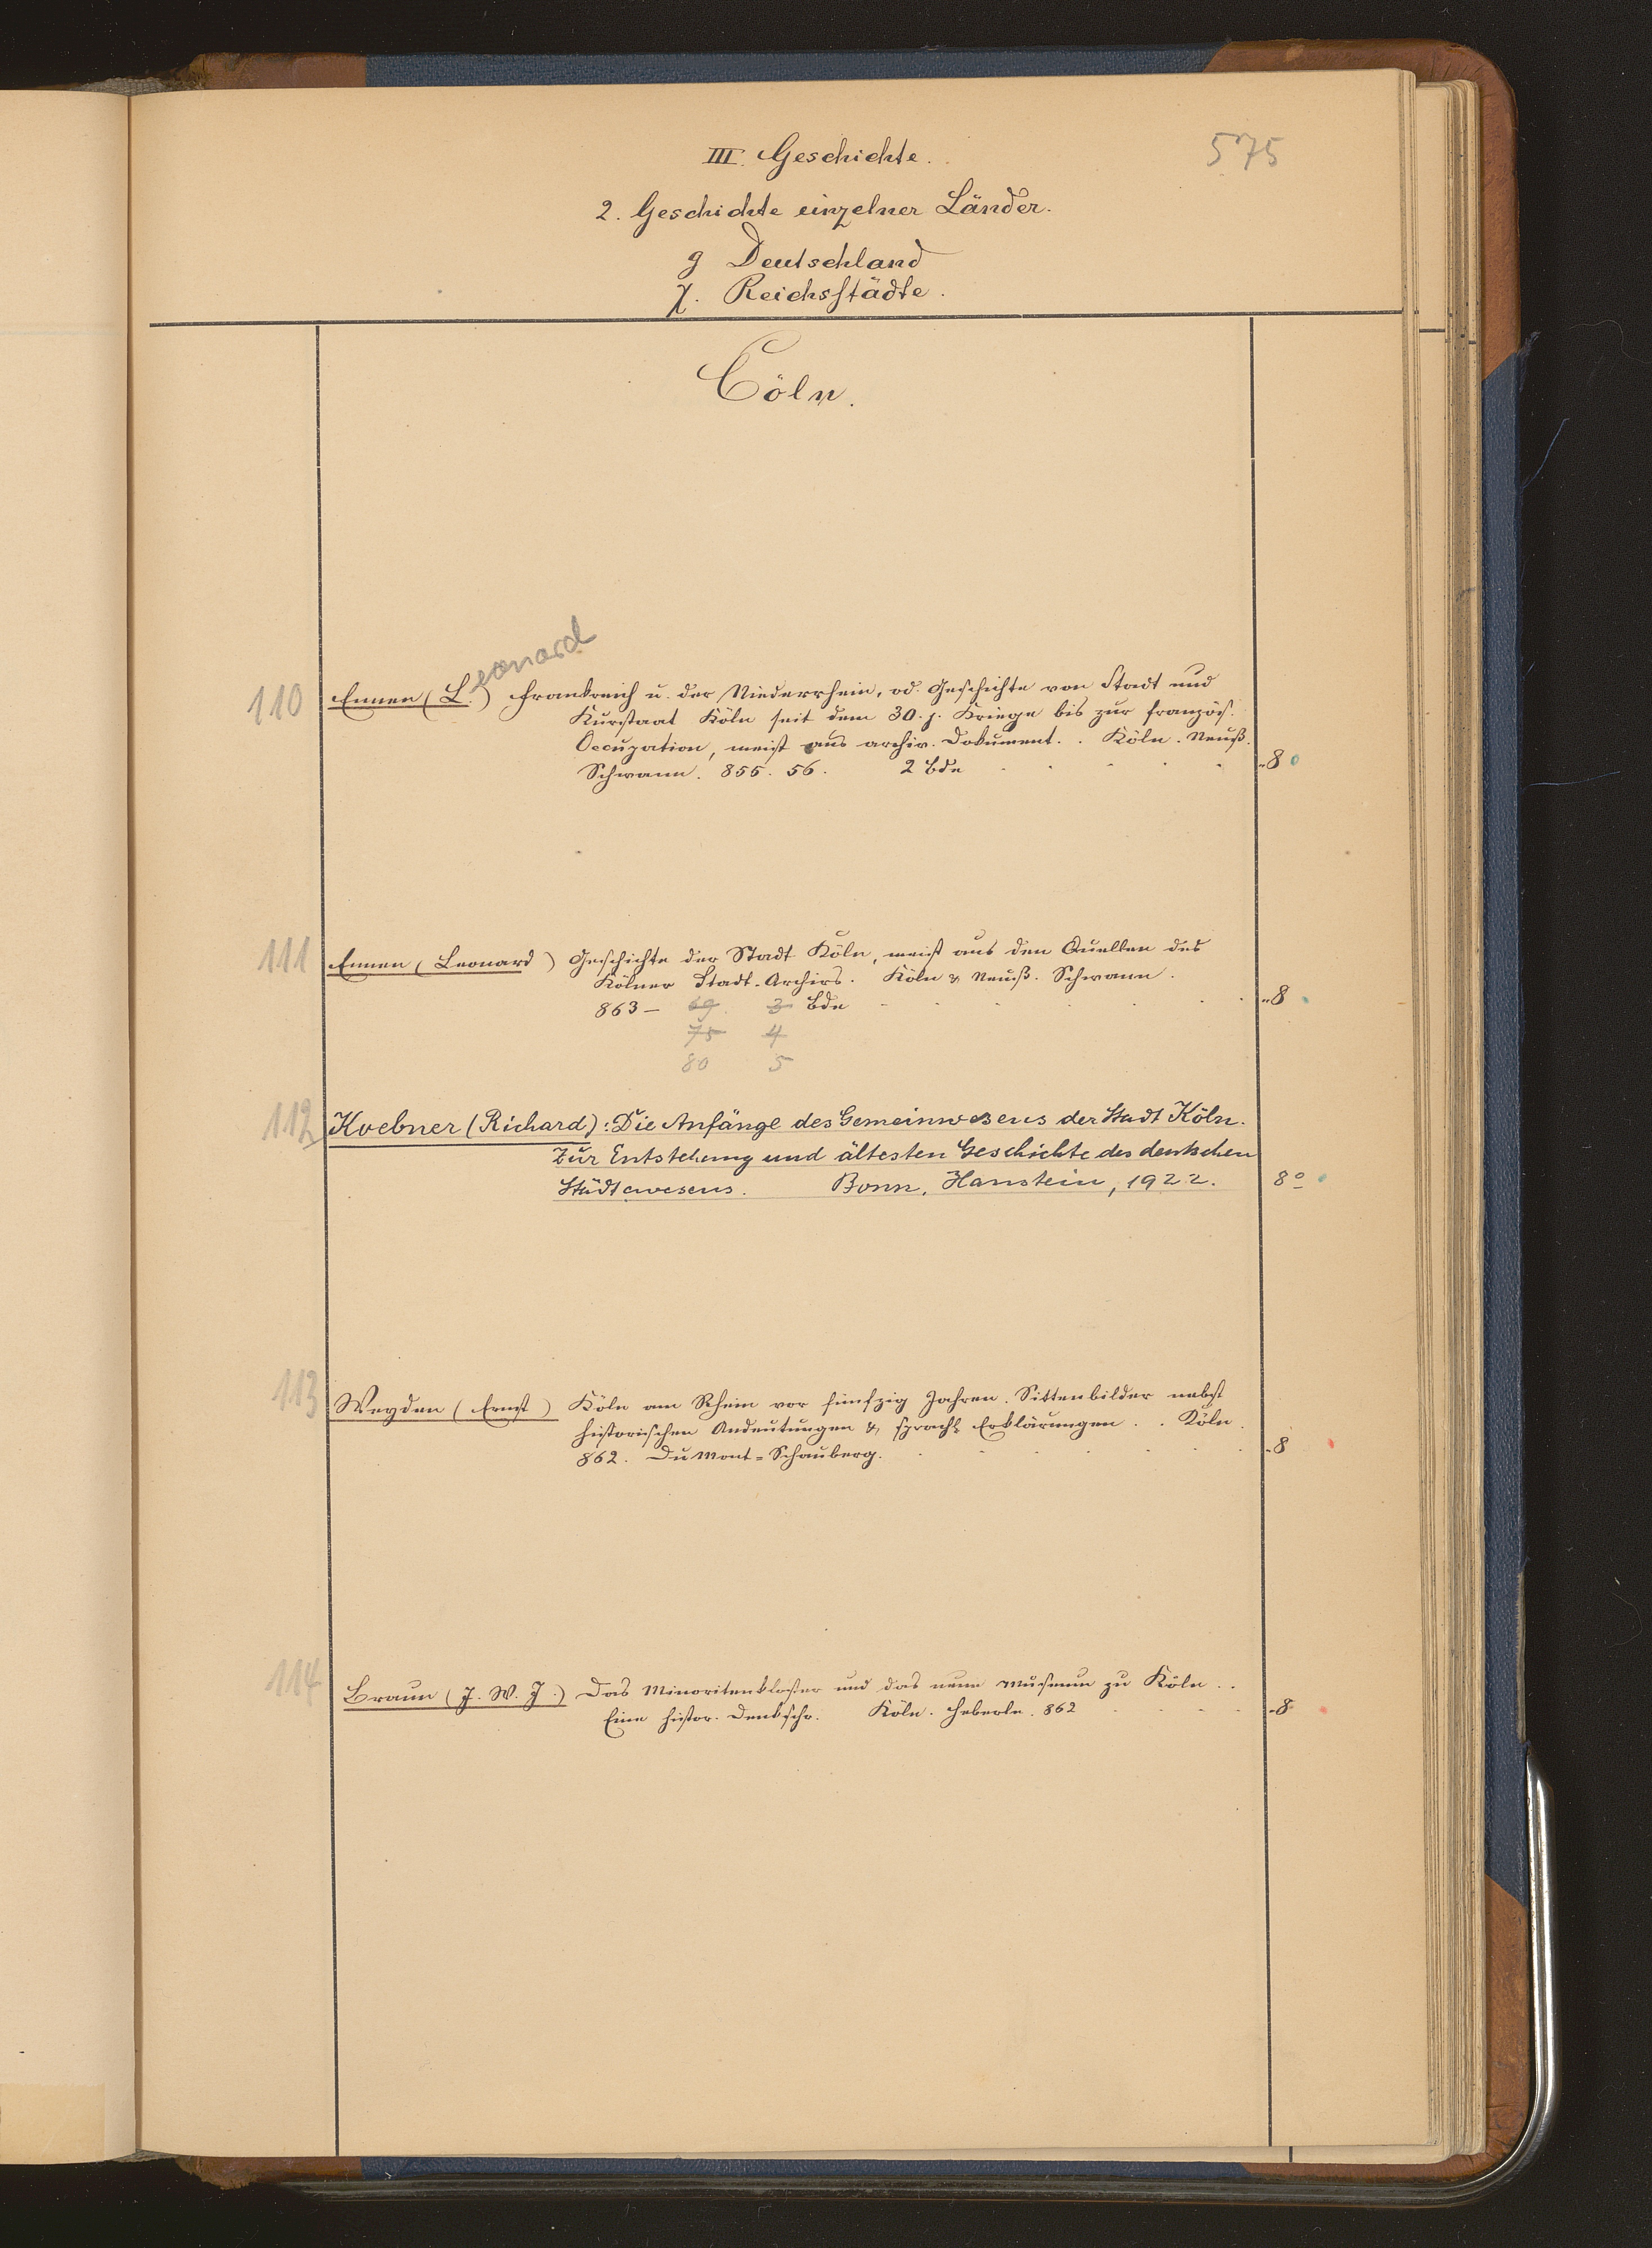 575
III. Geschichte.
2. Geschichte einzelner Länder.
g Deutschland
χ. Reichsstädte.
Cöln.
eonard
110 Ennen (L.) Frankreich u. der Niederrhein, od. Geschichte von Stadt und
Kurstaat Köln seit dem 30. j. Kriege bis zur französ.
Occupation, meist aus archiv. Dokument. . Köln. Neuß.
Schwann. 855. 56. 2 Bde - 8°
111 Ennen (Leonard) Geschichte der Stadt Köln, meist aus den Quellen des
Kölner Stadt-Archivs. Köln & Neuß. Schwann.
863 – 69. 3 Bde - 8
75 4
80 5
112 Koebner (Richard): Die Anfänge des Gemeinwesens der Stadt Köln.
Zur Entstehung und ältesten Geschichte des deutschen
Städtewesens. Bonn, Hanstein, 1922. 8°
113 Weyden (Ernst) Köln am Rhein vor fünfzig Jahren. Sittenbilder nebst
historischen Andeutungen & sprachl. Erklärungen. . Köln.
862. DuMont-Schauberg. - 8
114 Braun (J. W. J.) Das Minoritenkloster und das neue Museum zu Köln. .
Eine histor. Denkschr. Köln. Heberle. 862 - 8